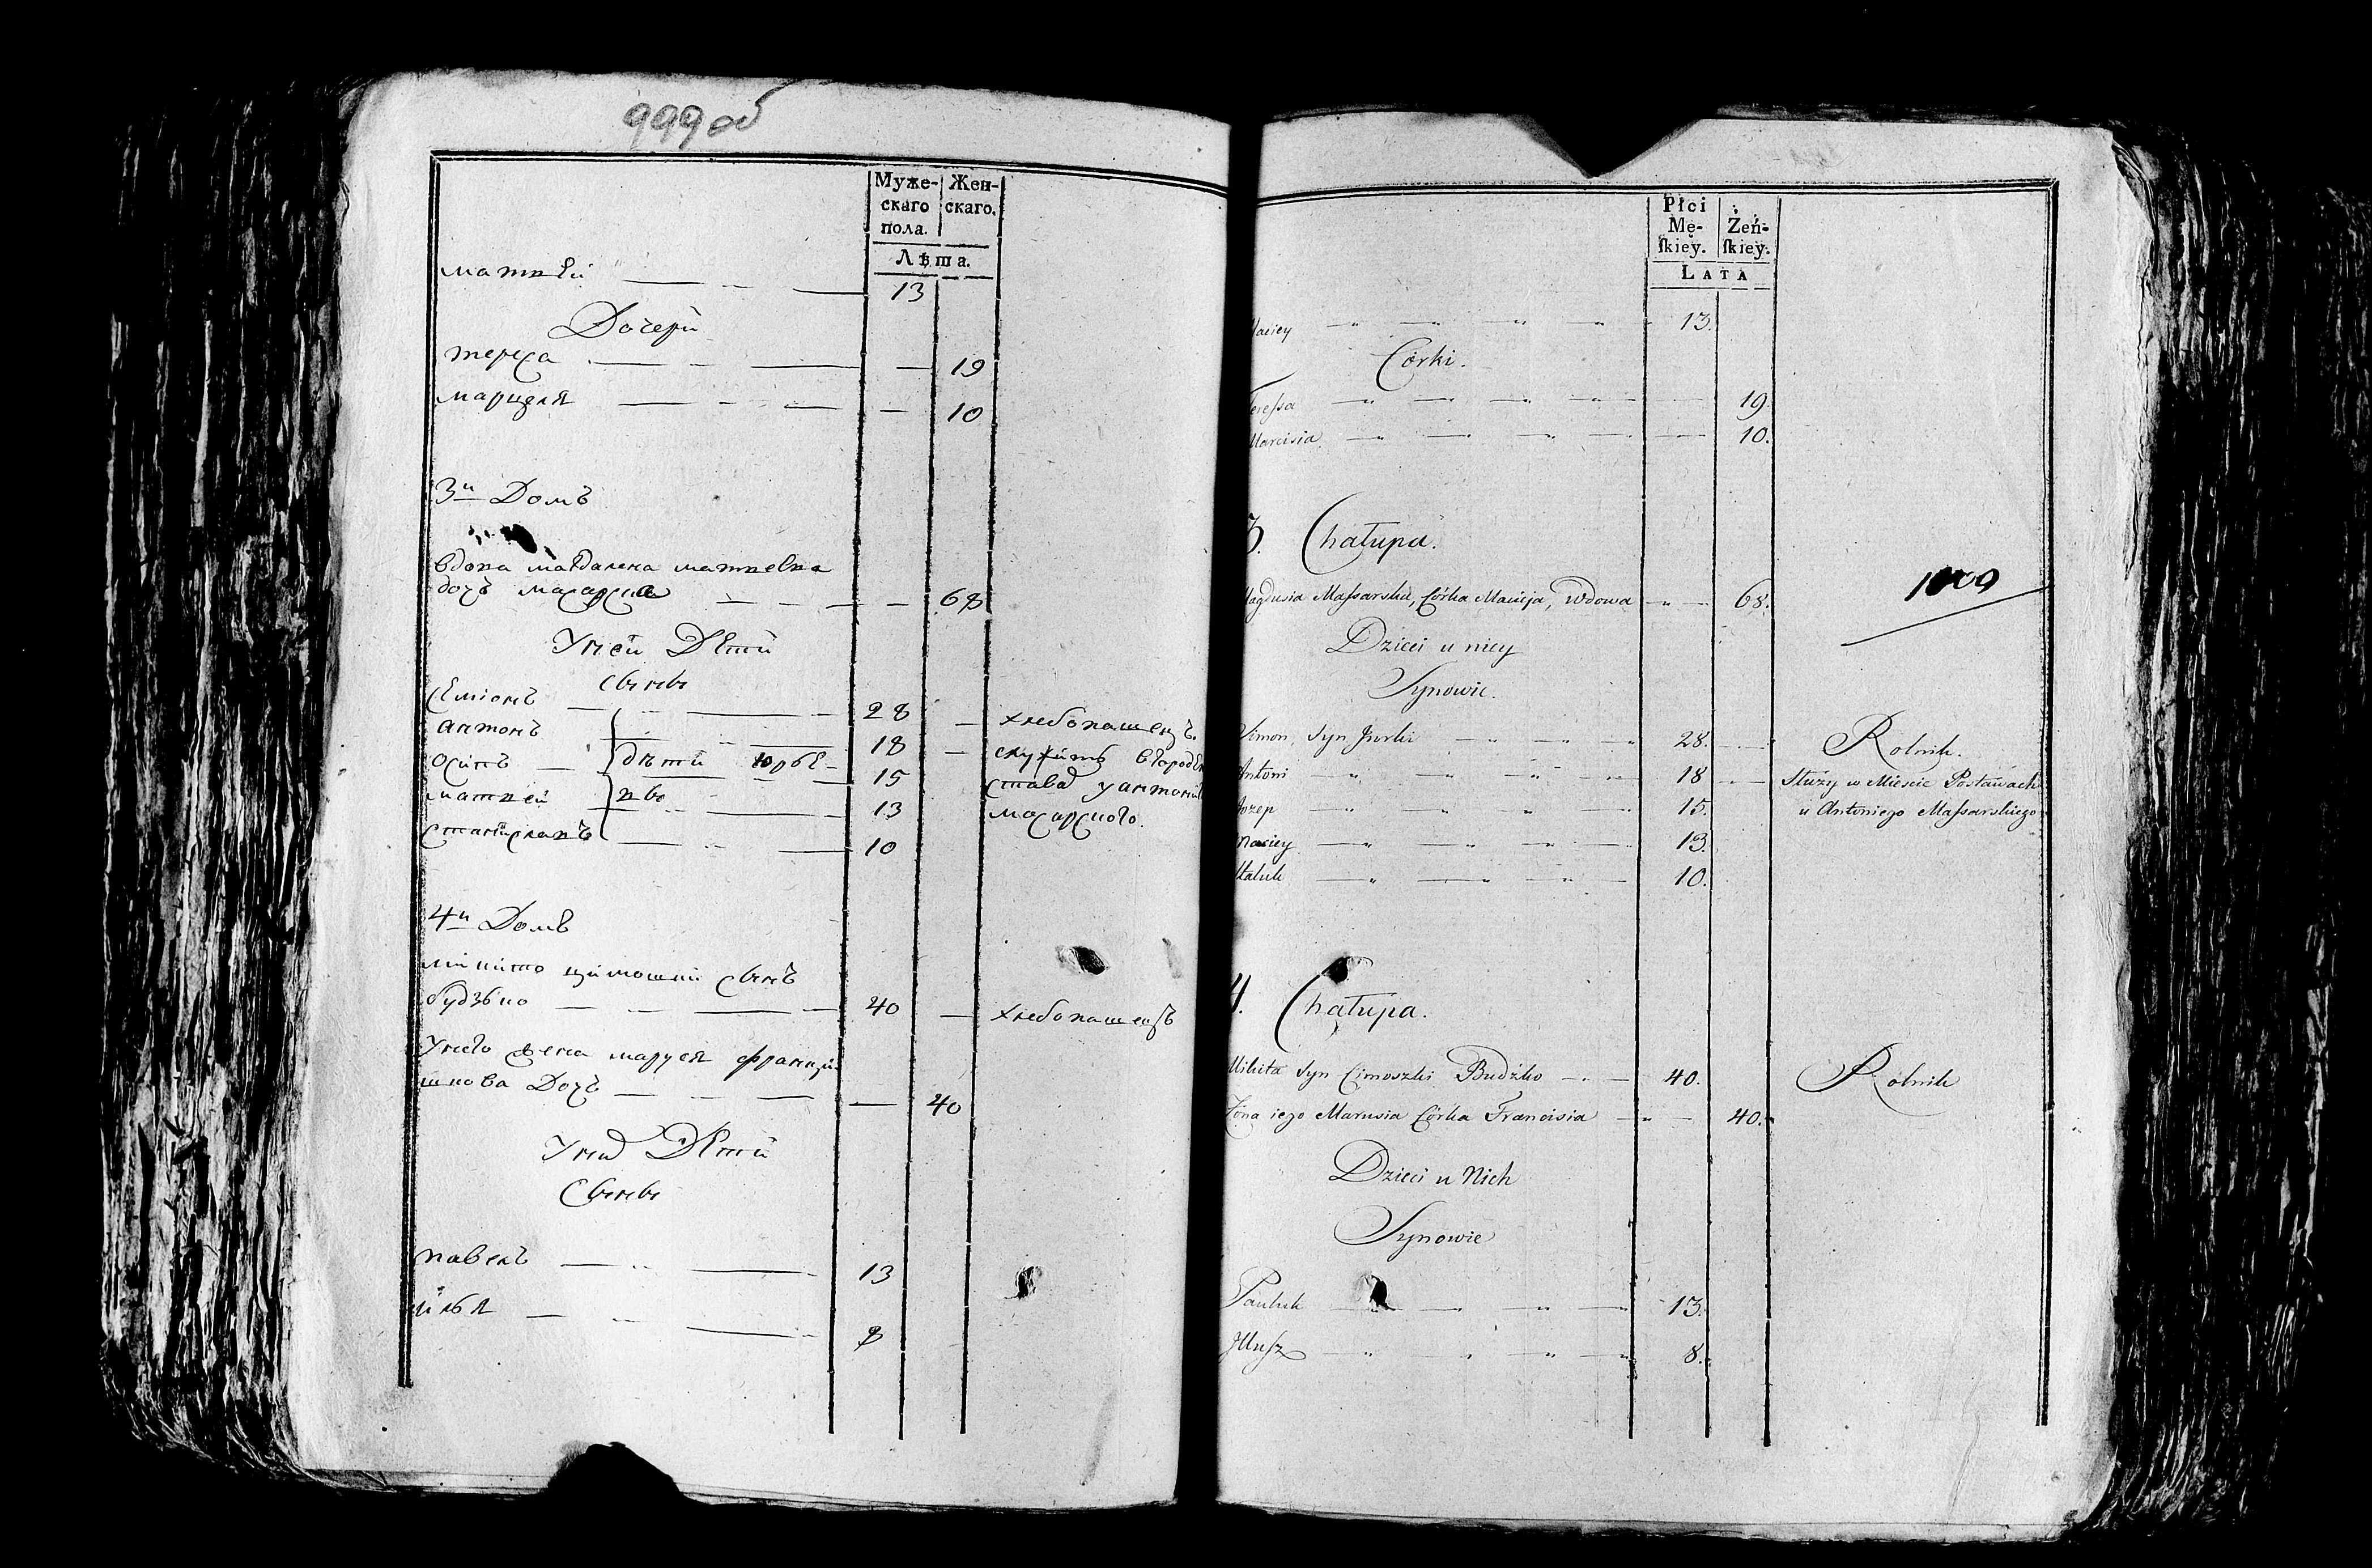 999 об
Муже-
скаго
пола.
Жен-
скаго.
Лѣта.
матвей 13
Дочери
тереса 19
марцеля 10
3й Домъ
вдова магдалена матвевна
дочъ масарска 68
У ней Дети
Сыны
семіонъ 28 хлебопашецъ.
антонъ 18 служитъ в городе
осипъ дѣти юрье- 15 ставах у антони
матвей вы 13 масарского.
станиславъ 10
4й Домъ
микито цимошки сынъ
будзько 40 хлебопашецъ
У него жена маруся францы
шкова Дочъ 40
У них Дети
Сыны
павелъ 13
илья 8
Płci
Mę-
skiey.
Żeń-
skiey.
LATA
Maciey 13.
Córki.
Teressa 19.
Marcisia 10.
3. Chałupa.
1000
Magdusia Massarska, Córka Macieja, Wdowa 68.
Dzieci u niey
Synowie.
Simon, Syn Jurki 28. Rolnik.
Antoni 18 Służy w Mieście Postawach
Jozep 15. u Antoniego Massarskiego
Maciey 13.
Staluk 10.
4. Chałupa.
Mikita Syn Cimoszki Budźko 40. Rolnik
Żona iego Marusia Córka Francisia 40.
Dzieci u Nich
Synowie
Pauluk 13.
Illusz 8.